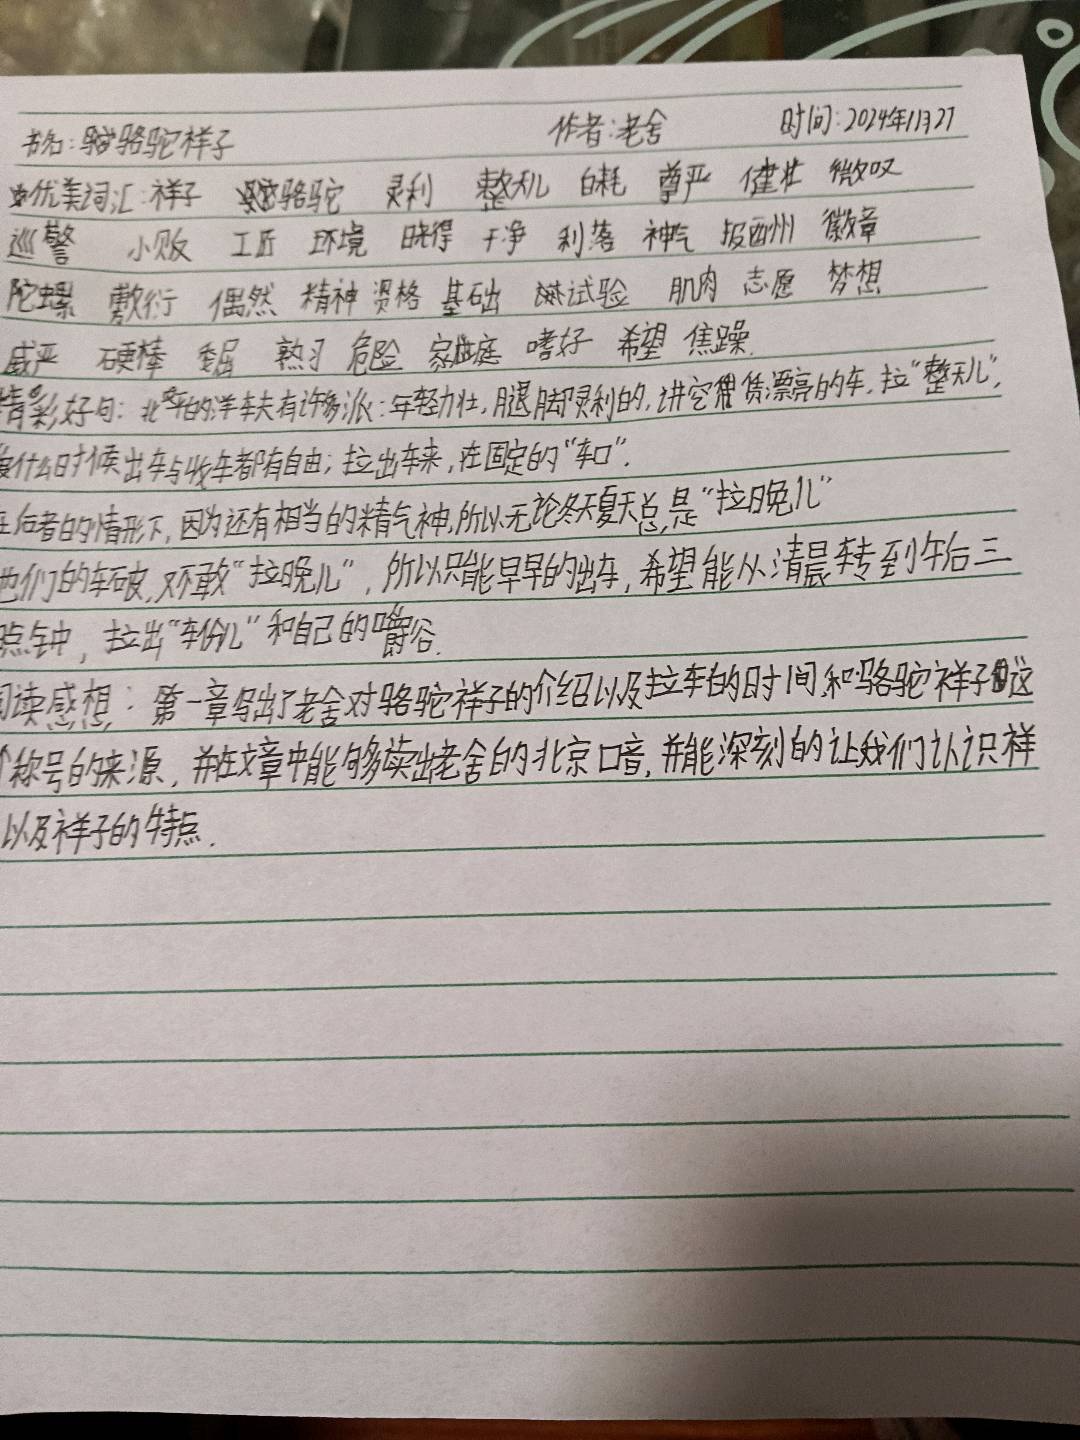 书名:骆驼祥子 作者:老舍 时间:2024年11月27
优美词汇:祥子 骆驼 灵利 整天儿 白耗 尊严 健壮 微叹
巡警 小贩 工匠 环境 晓得 干净 利落 神气 报酬 徽章
陀螺 敷衍 偶然 精神 资格 基础 试验 肌肉 志愿 梦想
威严 硬棒 委屈 熟习 危险 家庭 嗜好 希望 焦躁.
精彩好句:北平的洋车夫有许多派:年轻力壮,腿脚灵利的,讲究赁漂亮的车,拉“整天儿”,
什么时候出车与收车都有自由;拉出车来,在固定的“车口”.
在后者的情形下,因为还有相当的精气神,所以无论冬天夏天总是“拉晚儿”
他们的车破,又不敢“拉晚儿”,所以只能早早的出车,希望能从清晨转到午后三
点钟,拉出“车份儿”和自己的嚼谷.
阅读感想:第一章写出了老舍对骆驼祥子的介绍以及拉车的时间和骆驼祥子这
个称号的来源,并在文章中能够读出老舍的北京口音,并能深刻的让我们认识祥
以及祥子的特点.